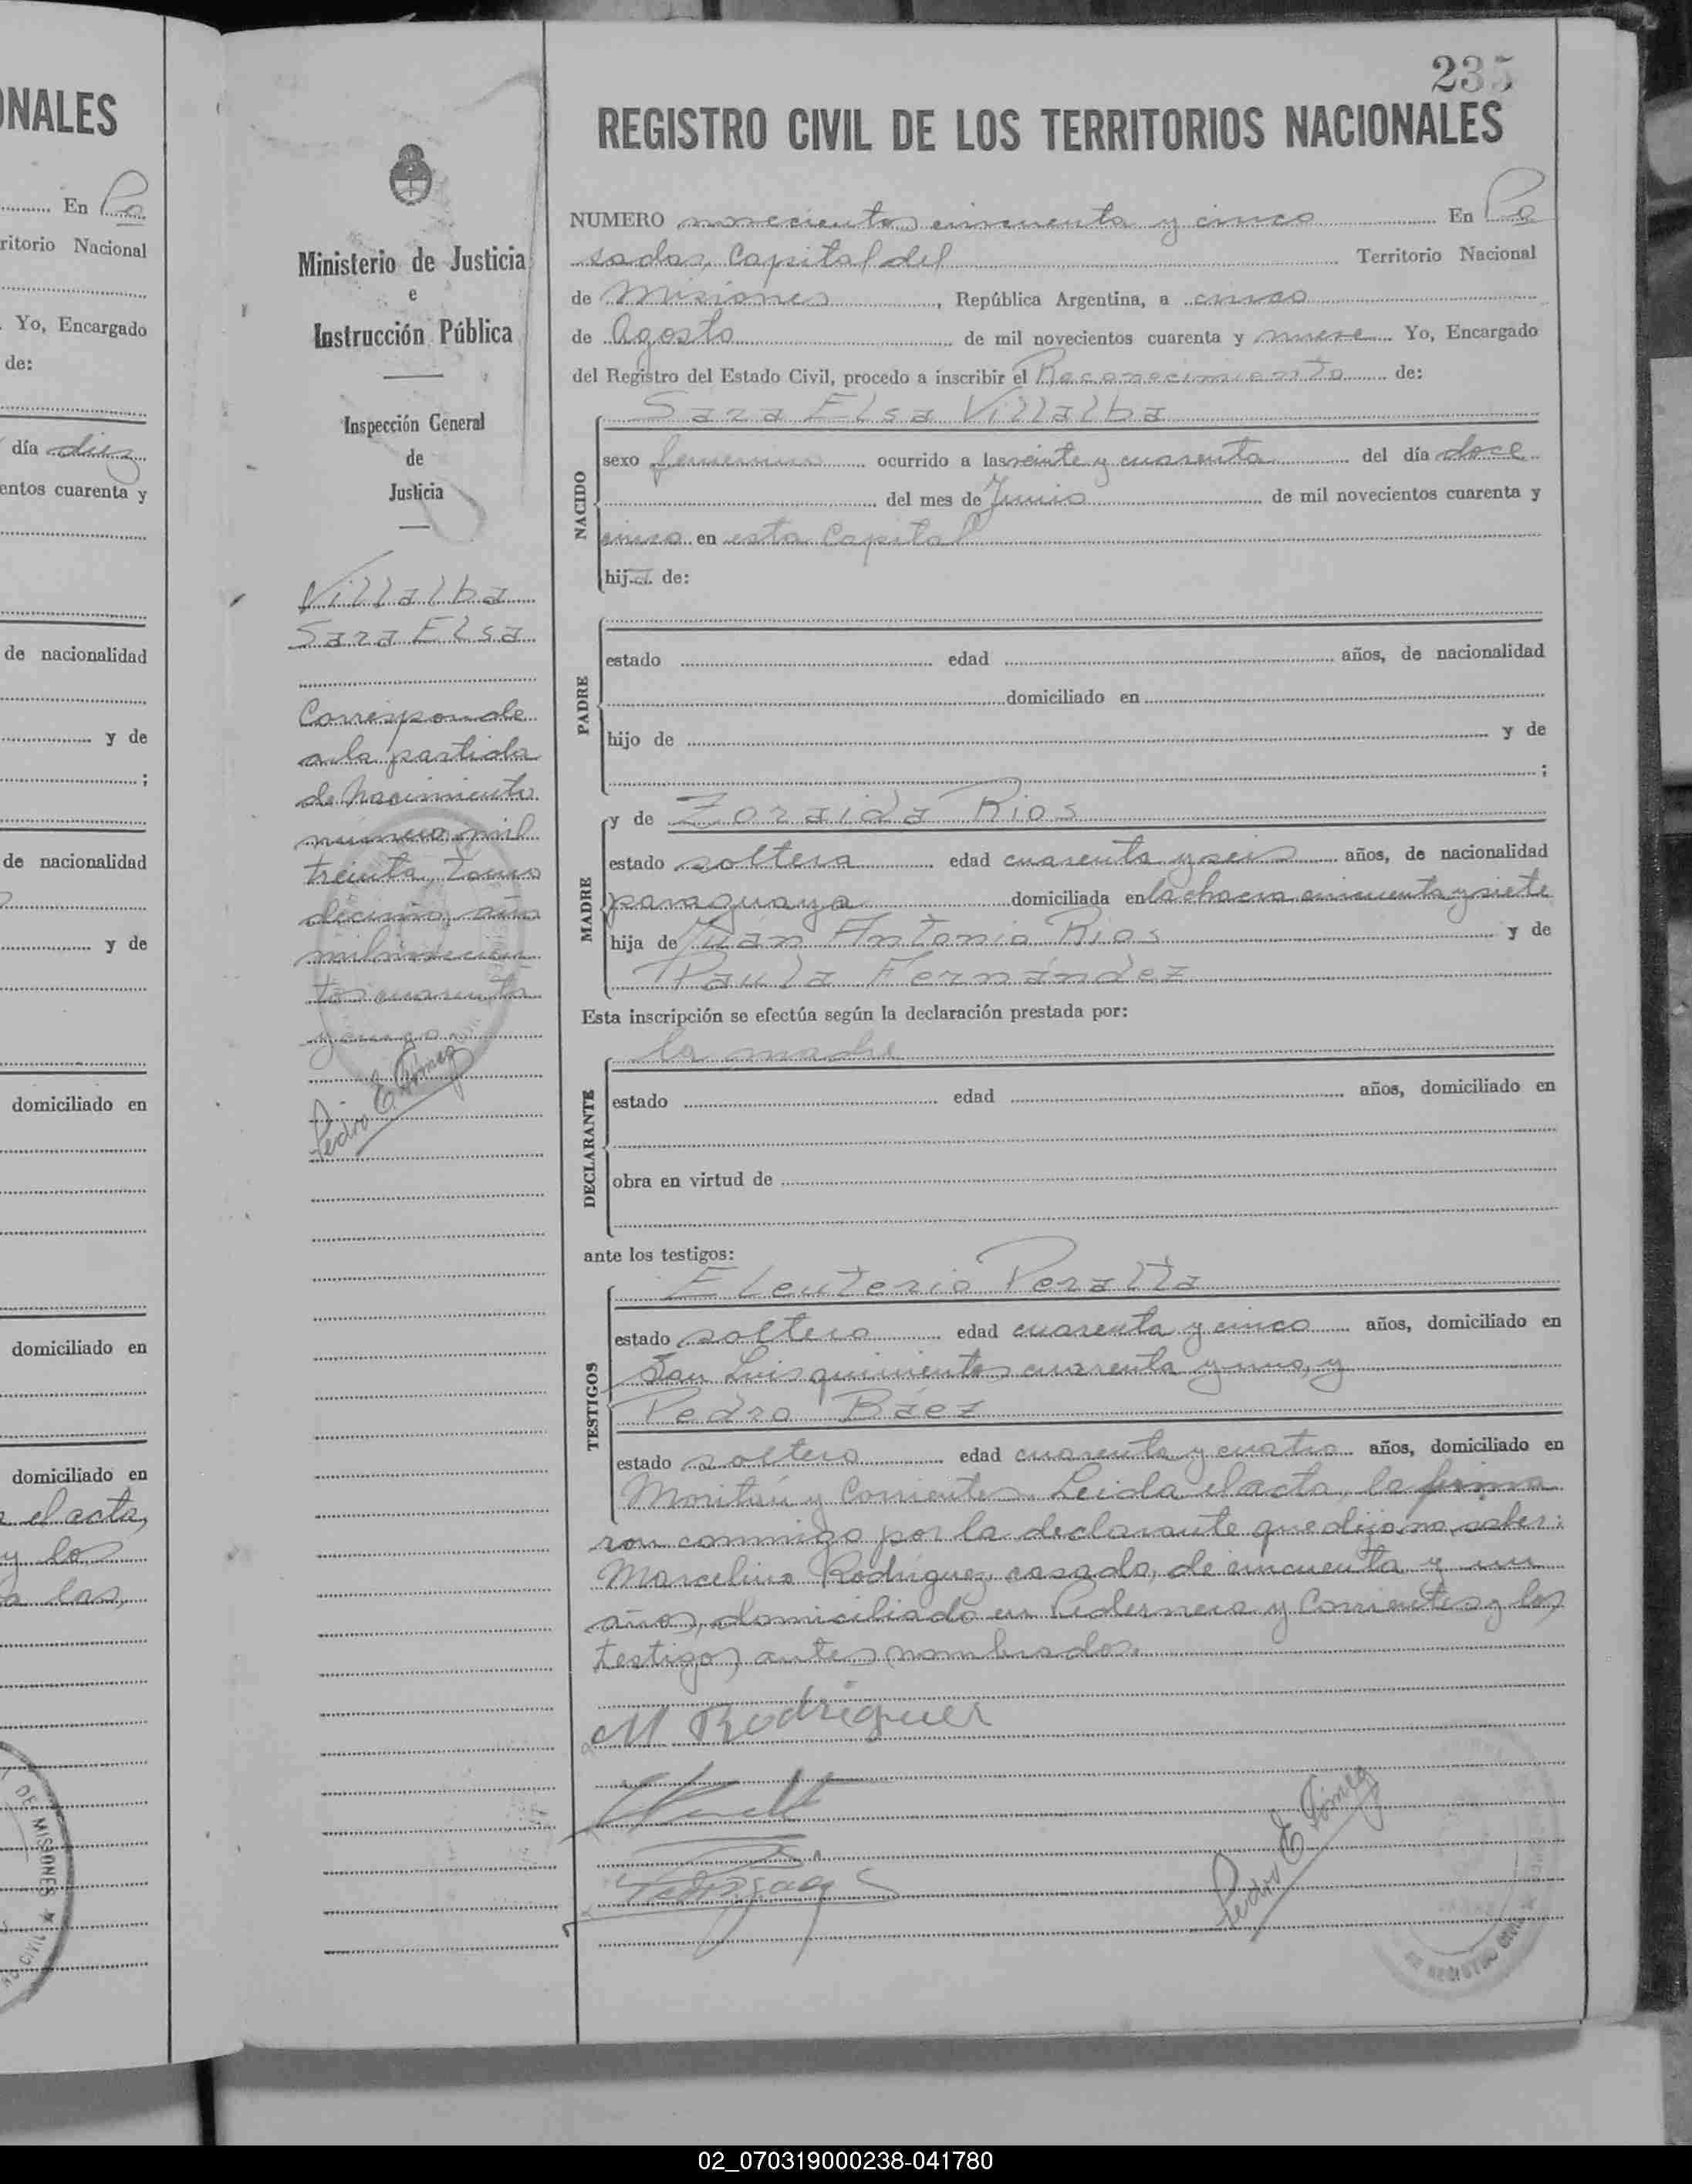 ONALES
En Po
ritorio Nacional
Yo, Encargado
de:
día diez
entos cuarenta y
de nacionalidad
y de
;
de nacionalidad
y de
domiciliado en
domiciliado en
domiciliado en
el acta,
y los
a las,
DE MISIONES
CIVIL
Ministerio de Justicia
e
Instrucción Pública
Inspección General
de
Justicia
Villalba
Sara Elsa
Corresponde
a la partida
de Nacimiento
número mil
treinta, tomo
décimo, año
mil novecien
tos cuarenta
y cinco
Pedro E. Gómez
235
REGISTRO CIVIL DE LOS TERRITORIOS NACIONALES
NUMERO novecientos cincuenta y cinco En Po
sadas, Capital del Territorio Nacional
de Misiones, República Argentina, a cinco
de Agosto de mil novecientos cuarenta y nueve Yo, Encargado
del Registro del Estado Civil, procedo a inscribir el Reconocimiento de:
Sara Elsa Villalba
NACIDO
sexo femenino ocurrido a las veinte y cuarenta del día doce
del mes de Junio de mil novecientos cuarenta y
cinco en esta Capital
hija de:
PADRE
estado edad años, de nacionalidad
domiciliado en
hijo de y de
;
MADRE
y de Zoraida Rios
estado soltera edad cuarenta y seis años, de nacionalidad
paraguaya domiciliada en la chacra cincuenta y siete
hija de Juan Antonio Rios y de
Paula Fernández
Esta inscripción se efectúa según la declaración prestada por:
la madre
DECLARANTE
estado edad años, domiciliado en
obra en virtud de
ante los testigos:
TESTIGOS
Eleuterio Peralta
estado soltero edad cuarenta y cinco años, domiciliado en
San Luis quinientos cuarenta y uno, y
Pedro Báez
estado soltero edad cuarenta y cuatro años, domiciliado en
y Corrientes. Leida el acta, la firma
ron conmigo por la declarante que dijo no saber:
Marcelino Rodríguez, casado, de cincuenta y un
años, domiciliado en Pedernera y Corrientes y los
testigos antes nombrados.
M Rodriguez
Pedro E. Gómez
DE REGISTRO CIVIL
02_070319000238-041780